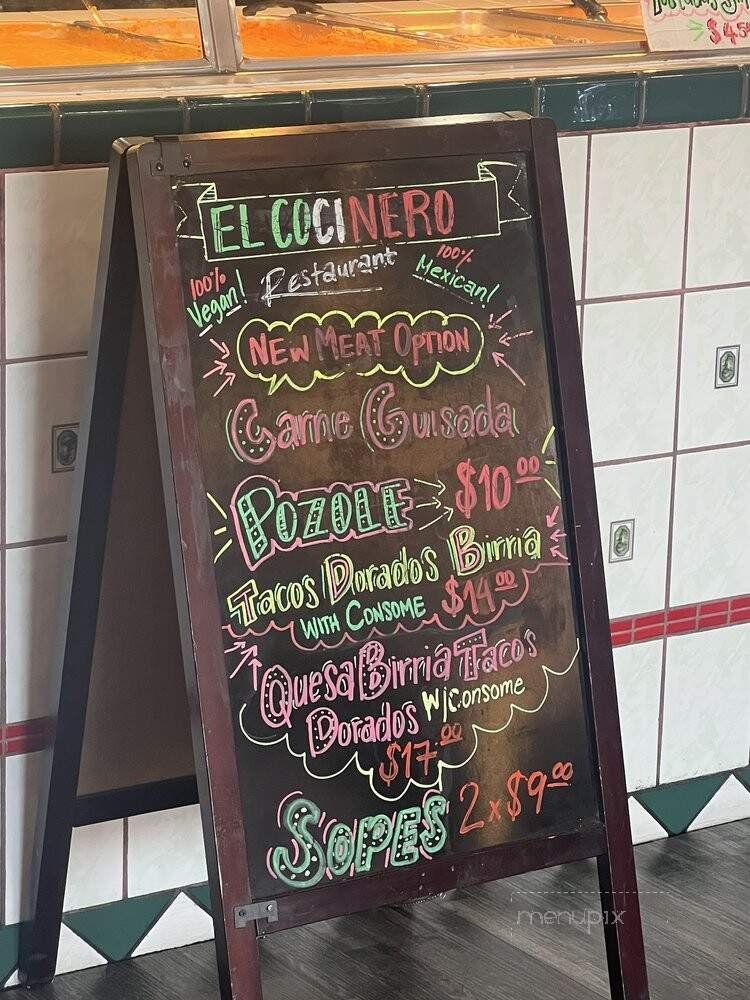 $4.50
EL COCINERO
100% Vegan!
Restaurant
100% Mexican!
NEW MEAT OPTION
Carne Guisada
POZOLE $10.00
Tacos Dorados Birria
WITH CONSOME $14.00
Quesa Birria Tacos
Dorados W/Consome
$17.00
SOPES 2 x $9.00
menupix